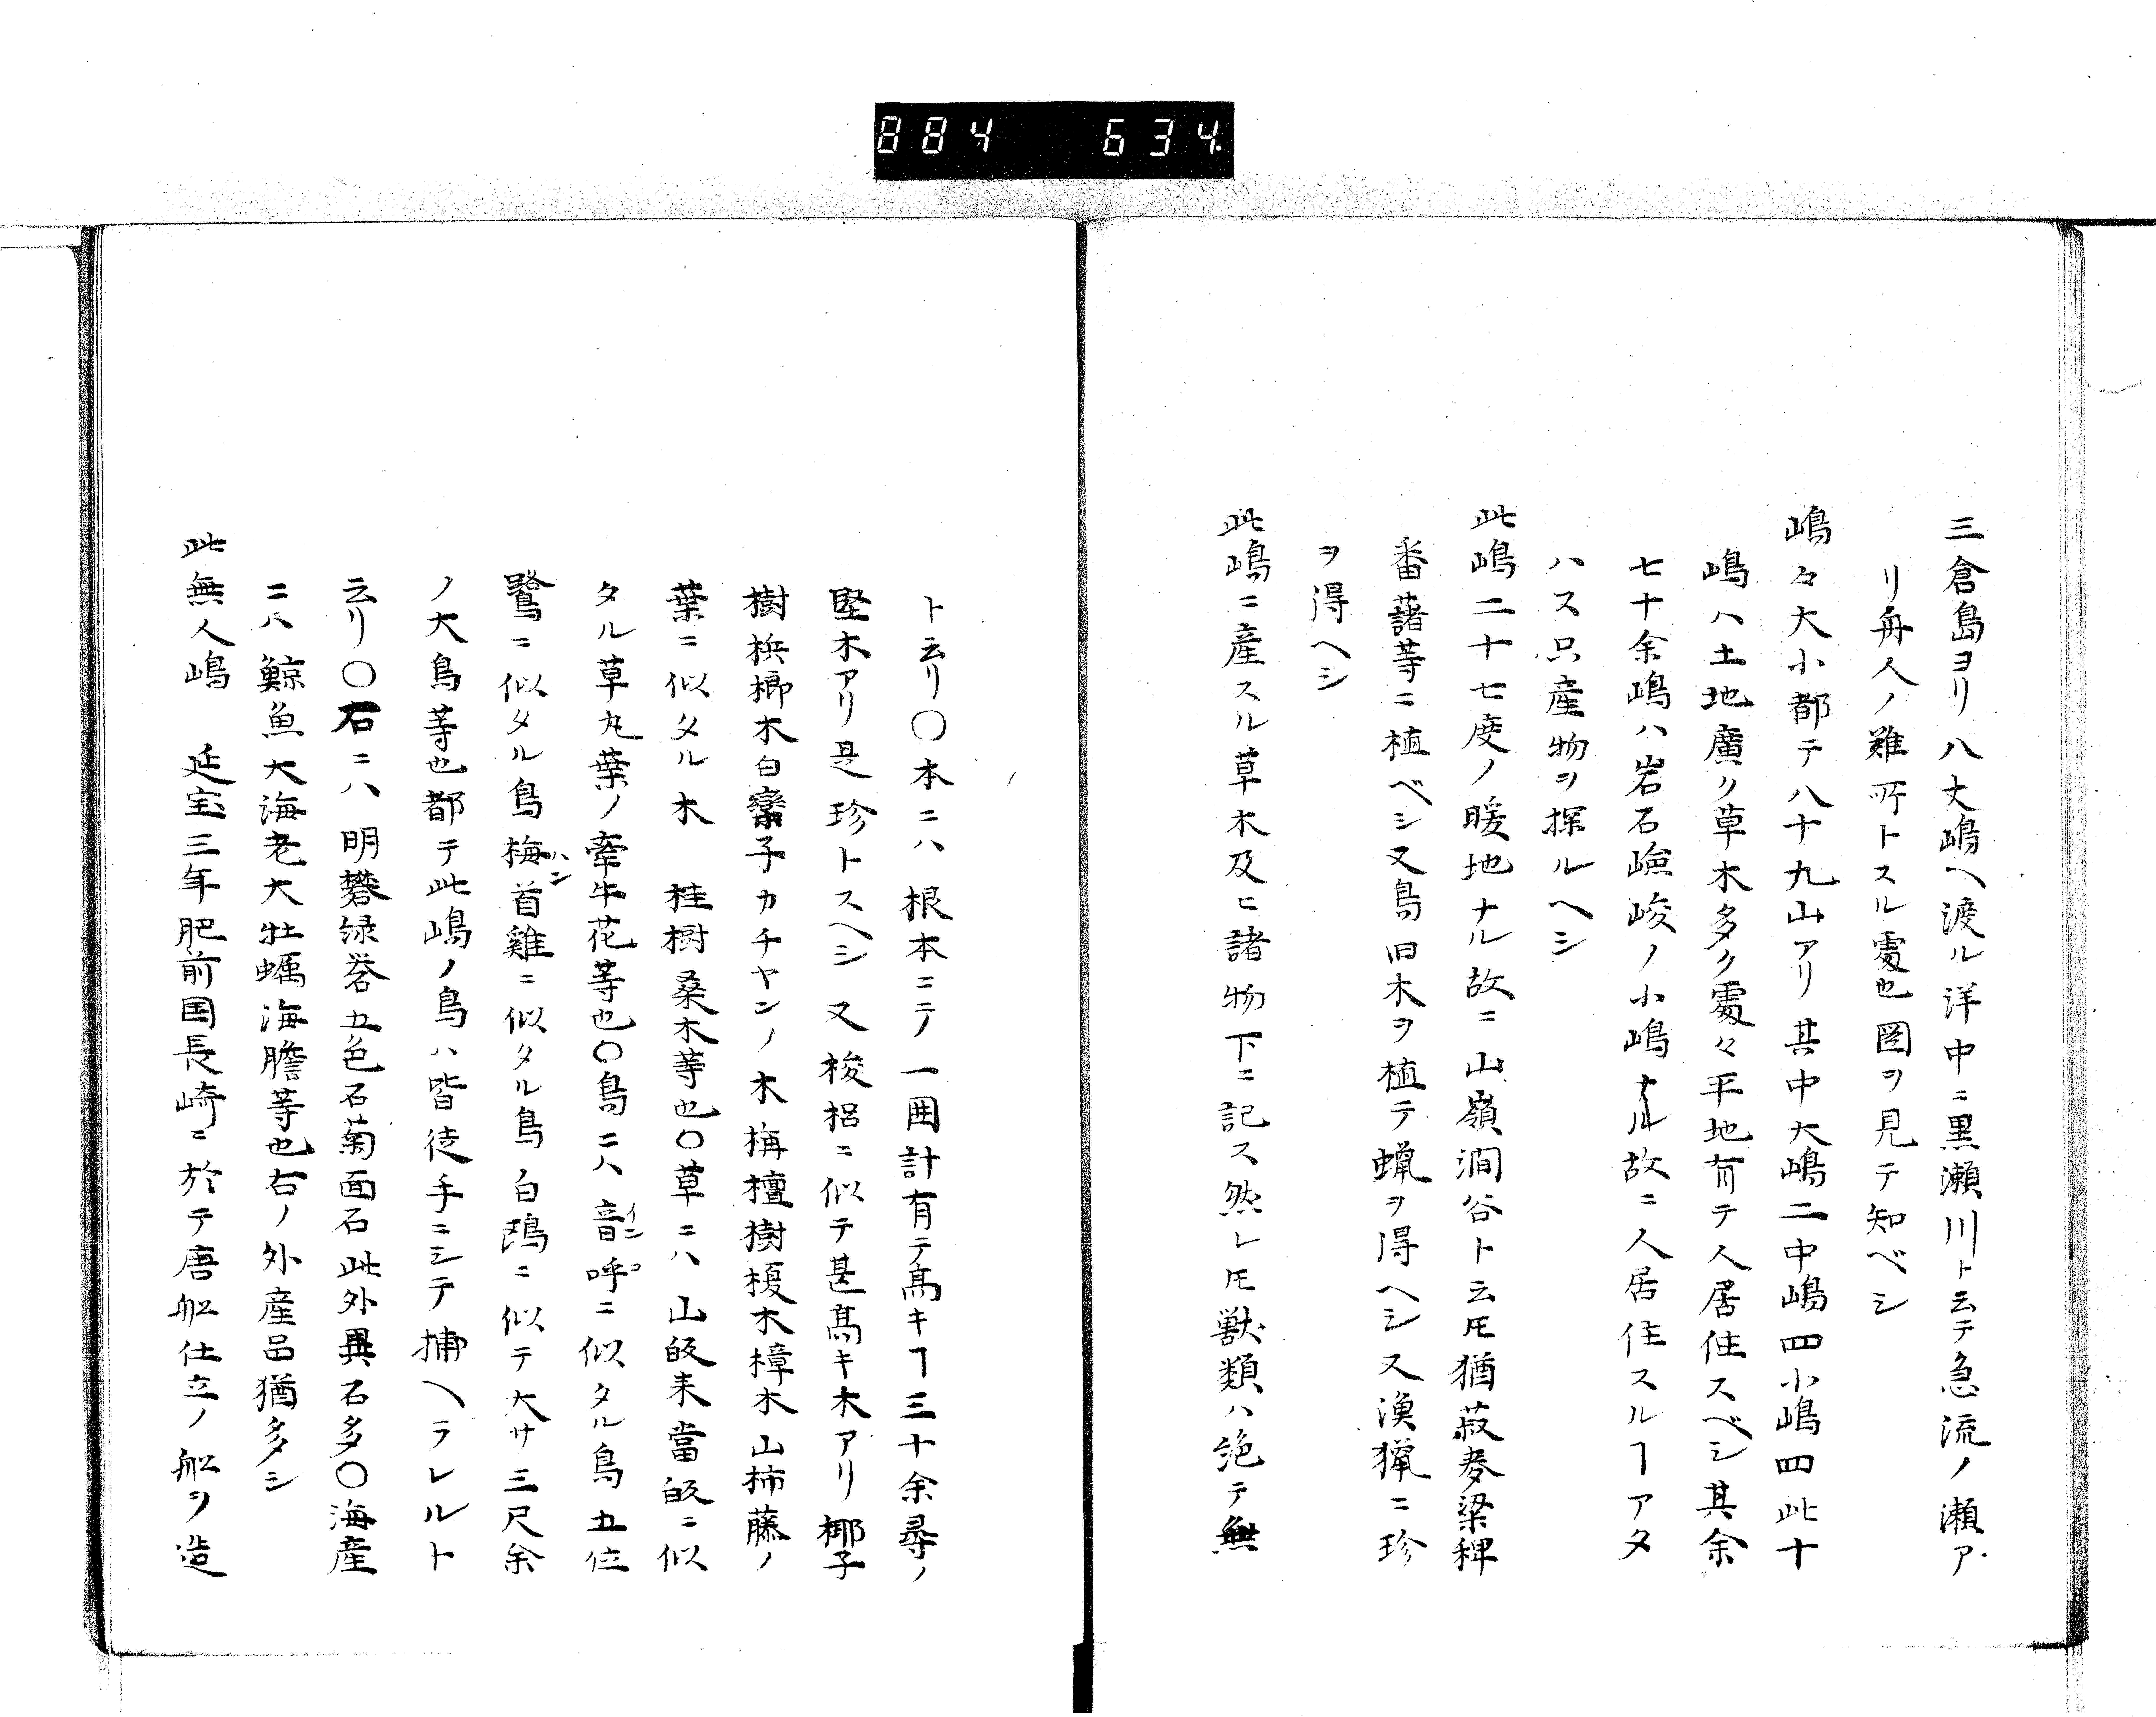 884 634
三倉島ヨリ八丈嶋ヘ渡ル洋中ニ黒瀬川ト云テ急流ノ瀬ア
リ舟人ノ難所トスル處也圖ヲ見テ知ベシ
嶋々大小都テ八十九山アリ其中大嶋二中嶋四小嶋四此十
嶋ハ土地廣ク草木多ク處々平地有テ人居住スベシ其余
七十余嶋ハ岩石嶮峻ノ小嶋ナル故ニ人居住スルヿアタ
ハス只産物ヲ探ルヘシ
此嶋二十七度ノ暖地ナル故ニ山嶺澗谷ト云𪜈猶菽麥粱稗
番藷等ニ植ベシ又烏旧木ヲ植テ蝋ヲ得ヘシ又漁猟ニ珍
ヲ得ヘシ
此嶋ニ産スル草木及ヒ諸物下ニ記ス然レ𪜈獣類ハ絶テ無
ト云リ〇本ニハ根本ニテ一囲計有テ髙キヿ三十余尋ノ
堅木アリ是珍トスヘシ又梭梠ニ似テ甚髙キ木アリ椰子
樹梹榔木白欒子カチヤンノ木栴檀樹榎木樟木山柿藤ノ
葉ニ似タル木 桂樹桑木等也〇草ニハ山皈来當皈ニ似
タル草丸葉ノ牽牛花等也〇鳥ニハ音呼インコニ似タル鳥五位
鷺ニ似タル鳥梅首雞ハンニ似タル鳥白鴎ニ似テ大サ三尺余
ノ大鳥等也都テ此嶋ノ鳥ハ皆徒手ニシテ捕ヘラレルト
云リ〇石ニハ明礬緑礬五色石菊面石此外異石多〇海産
ニハ鯨魚大海老大牡蠣海膽等也右ノ外産品猶多シ
此無人嶋 延宝三年肥前国長崎ニ於テ唐船仕立ノ船ヲ造